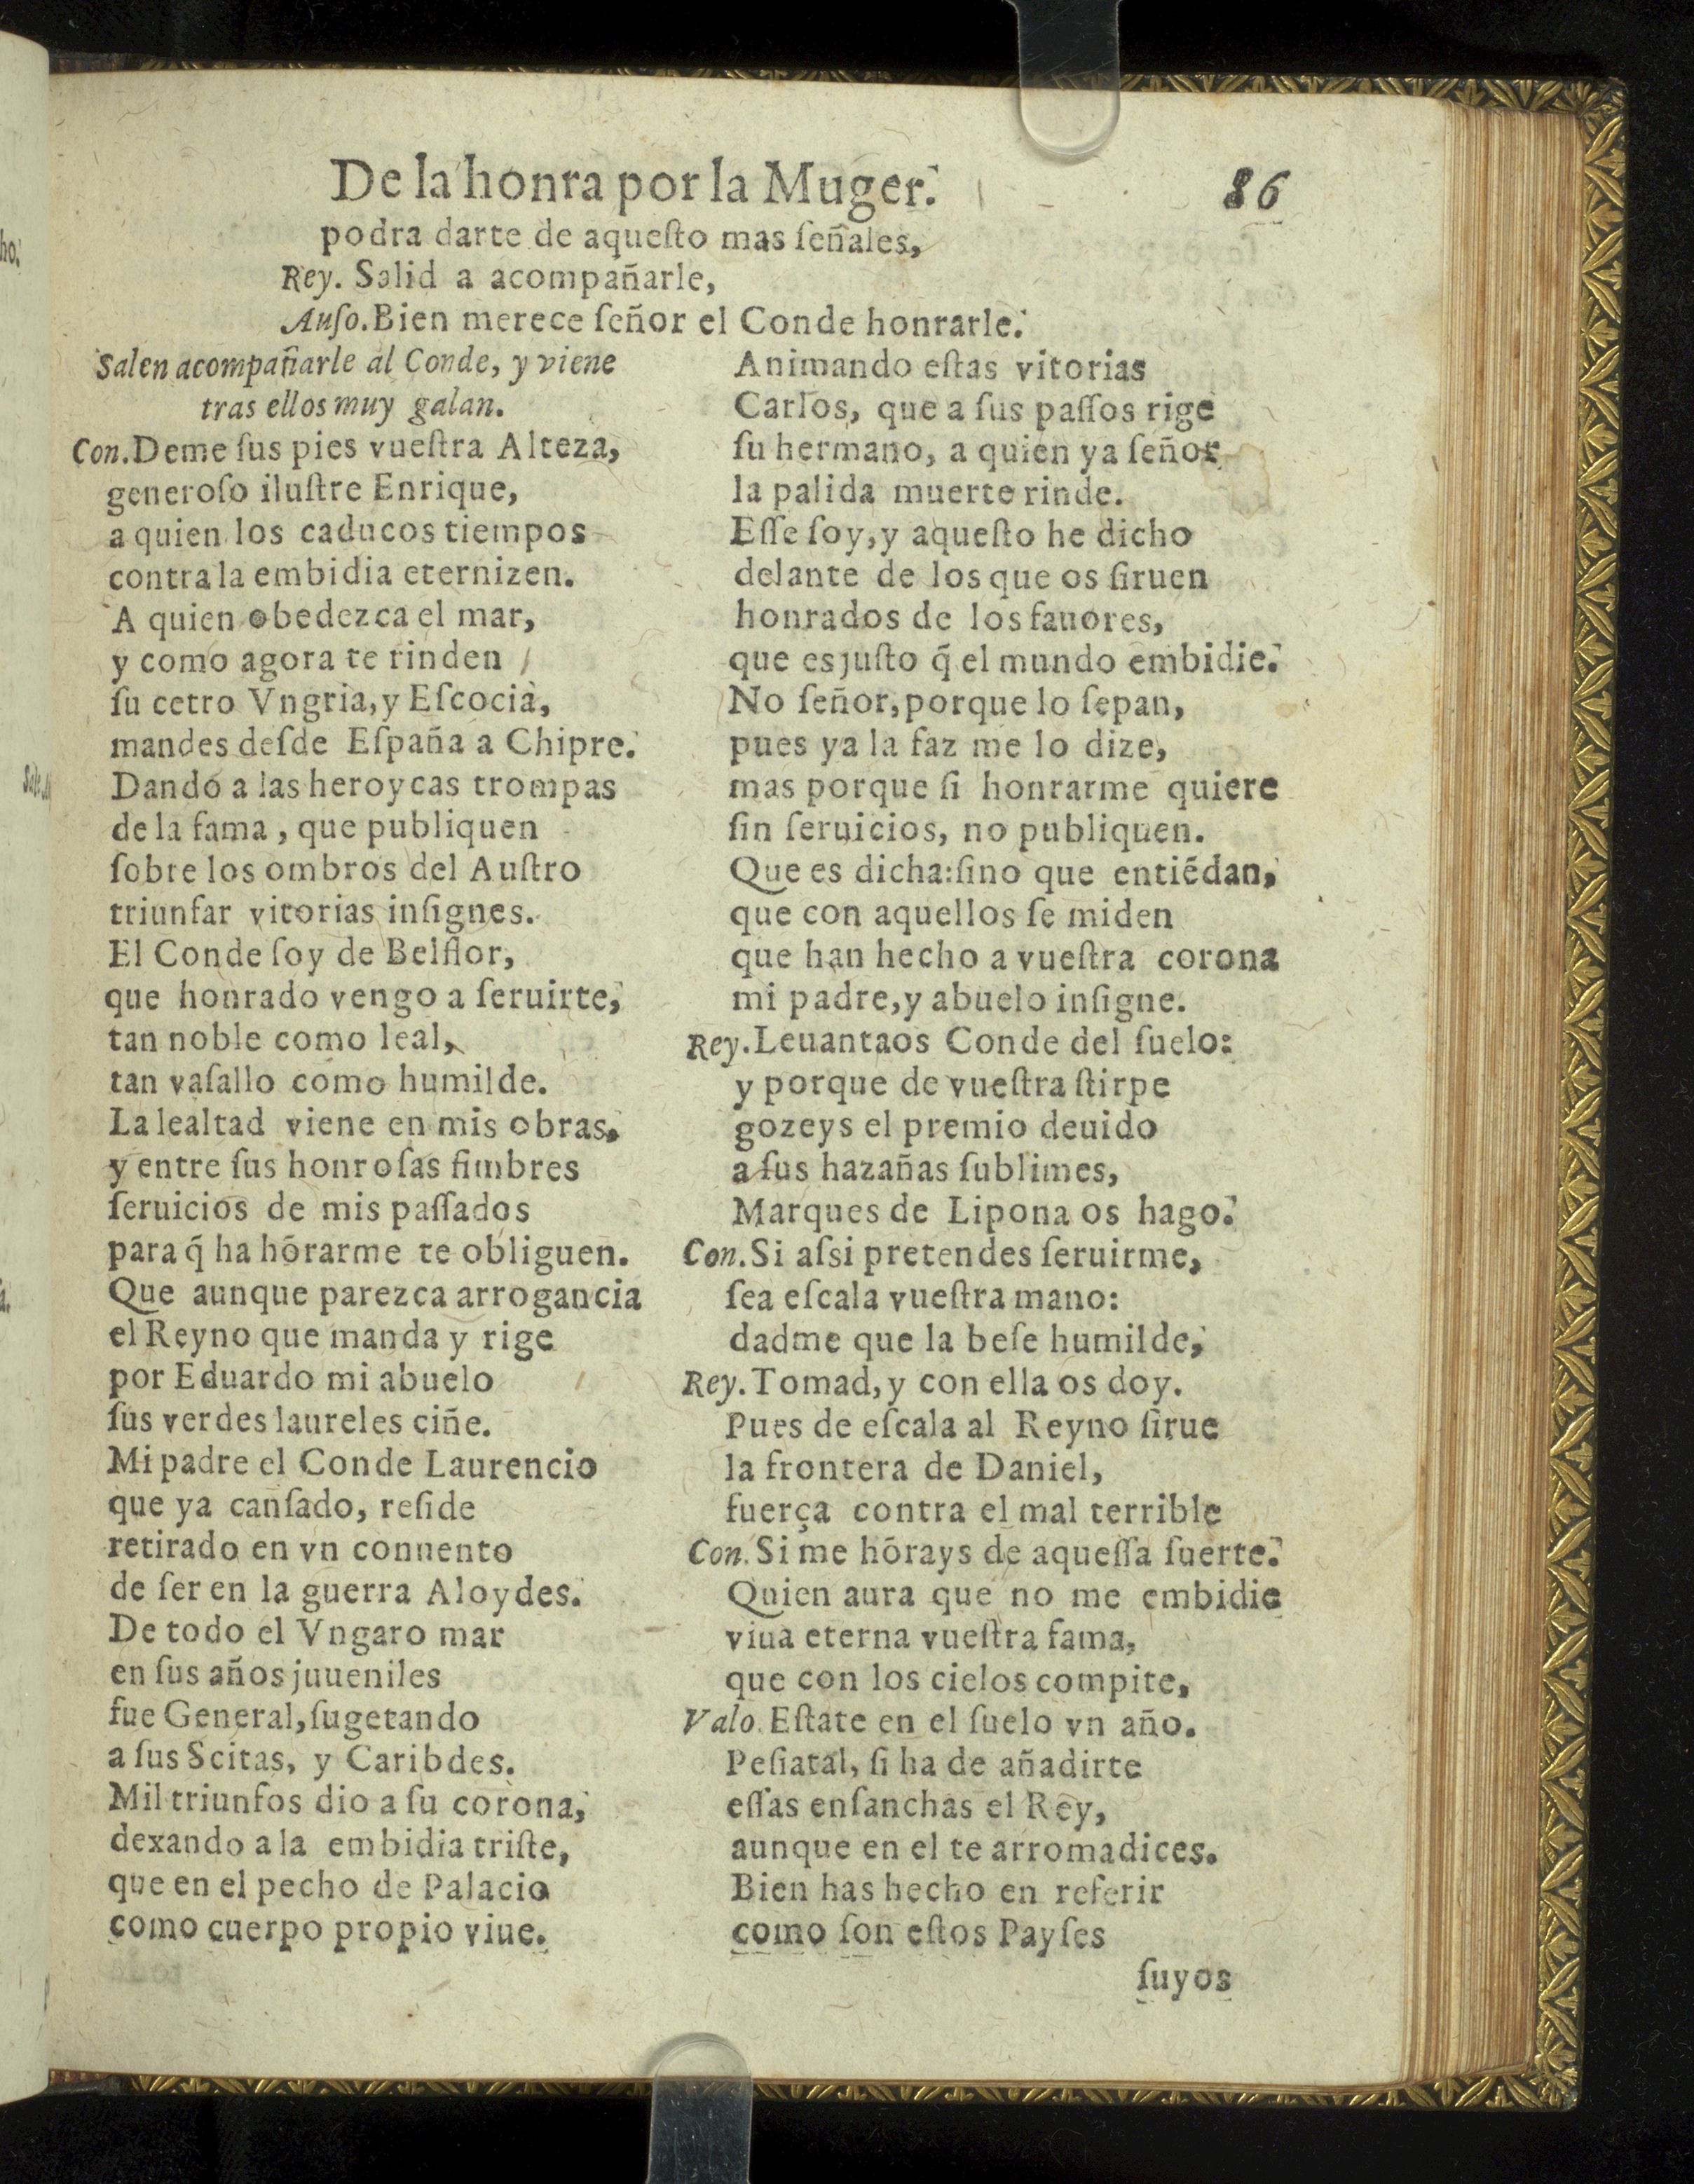 De la honra por la Muger.
86
podra darte de aqueſto mas ſeñales,
Rey. Salid a acompañarle,
Auſo. Bien merece ſeñor el Conde honrarle.
Salen acompañarle al Conde, y viene
tras ellos muy galan.
Con. Deme ſus pies vueſtra Alteza,
generoſo iluſtre Enrique,
a quien los caducos tiempos
contra la embidia eternizen.
A quien obedezca el mar,
y como agora te rinden
ſu cetro Vngria, y Eſcocia,
mandes deſde Eſpaña a Chipre.
Dando a las heroycas trompas
de la fama, que publiquen
ſobre los ombros del Auſtro
triunfar vitorias inſignes.
El Conde ſoy de Belflor,
que honrado vengo a ſeruirte,
tan noble como leal,
tan vaſallo como humilde.
La lealtad viene en mis obras,
y entre ſus honroſas fimbres
ſeruicios de mis paſſados
para q̃ ha hõrarme te obliguen.
Que aunque parezca arrogancia
el Reyno que manda y rige
por Eduardo mi abuelo
ſus verdes laureles ciñe.
Mi padre el Conde Laurencio
que ya canſado, reſide
retirado en vn conuento
de ſer en la guerra Aloydes.
De todo el Vngaro mar
en ſus años juueniles
fue General, ſugetando
a ſus Scitas, y Caribdes.
Mil triunfos dio a ſu corona,
dexando a la embidia triſte,
que en el pecho de Palacio
como cuerpo propio viue.
Animando eſtas vitorias
Carlos, que a ſus paſſos rige
ſu hermano, a quien ya ſeñor
la palida muerte rinde.
Eſſe ſoy, y aqueſto he dicho
delante de los que os ſiruen
honrados de los fauores,
que es juſto q̃ el mundo embidie.
No ſeñor, porque lo ſepan,
pues ya la faz me lo dize,
mas porque ſi honrarme quiere
ſin ſeruicios, no publiquen.
Que es dicha: ſino que entiẽdan,
que con aquellos ſe miden
que han hecho a vueſtra corona
mi padre, y abuelo inſigne.
Rey. Leuantaos Conde del ſuelo:
y porque de vueſtra ſtirpe
gozeys el premio deuido
a ſus hazañas ſublimes,
Marques de Lipona os hago.
Con. Si aſsi pretendes ſeruirme,
ſea eſcala vueſtra mano:
dadme que la beſe humilde,
Rey. Tomad, y con ella os doy.
Pues de eſcala al Reyno ſirue
la frontera de Daniel,
fuerça contra el mal terrible
Con. Si me hõrays de aqueſſa ſuerte.
Quien aura que no me embidie
viua eterna vueſtra fama,
que con los cielos compite,
Valo. Eſtate en el ſuelo vn año.
Peſiatal, ſi ha de añadirte
eſſas enſanchas el Rey,
aunque en el te arromadices.
Bien has hecho en referir
como ſon eſtos Payſes
ſuyos